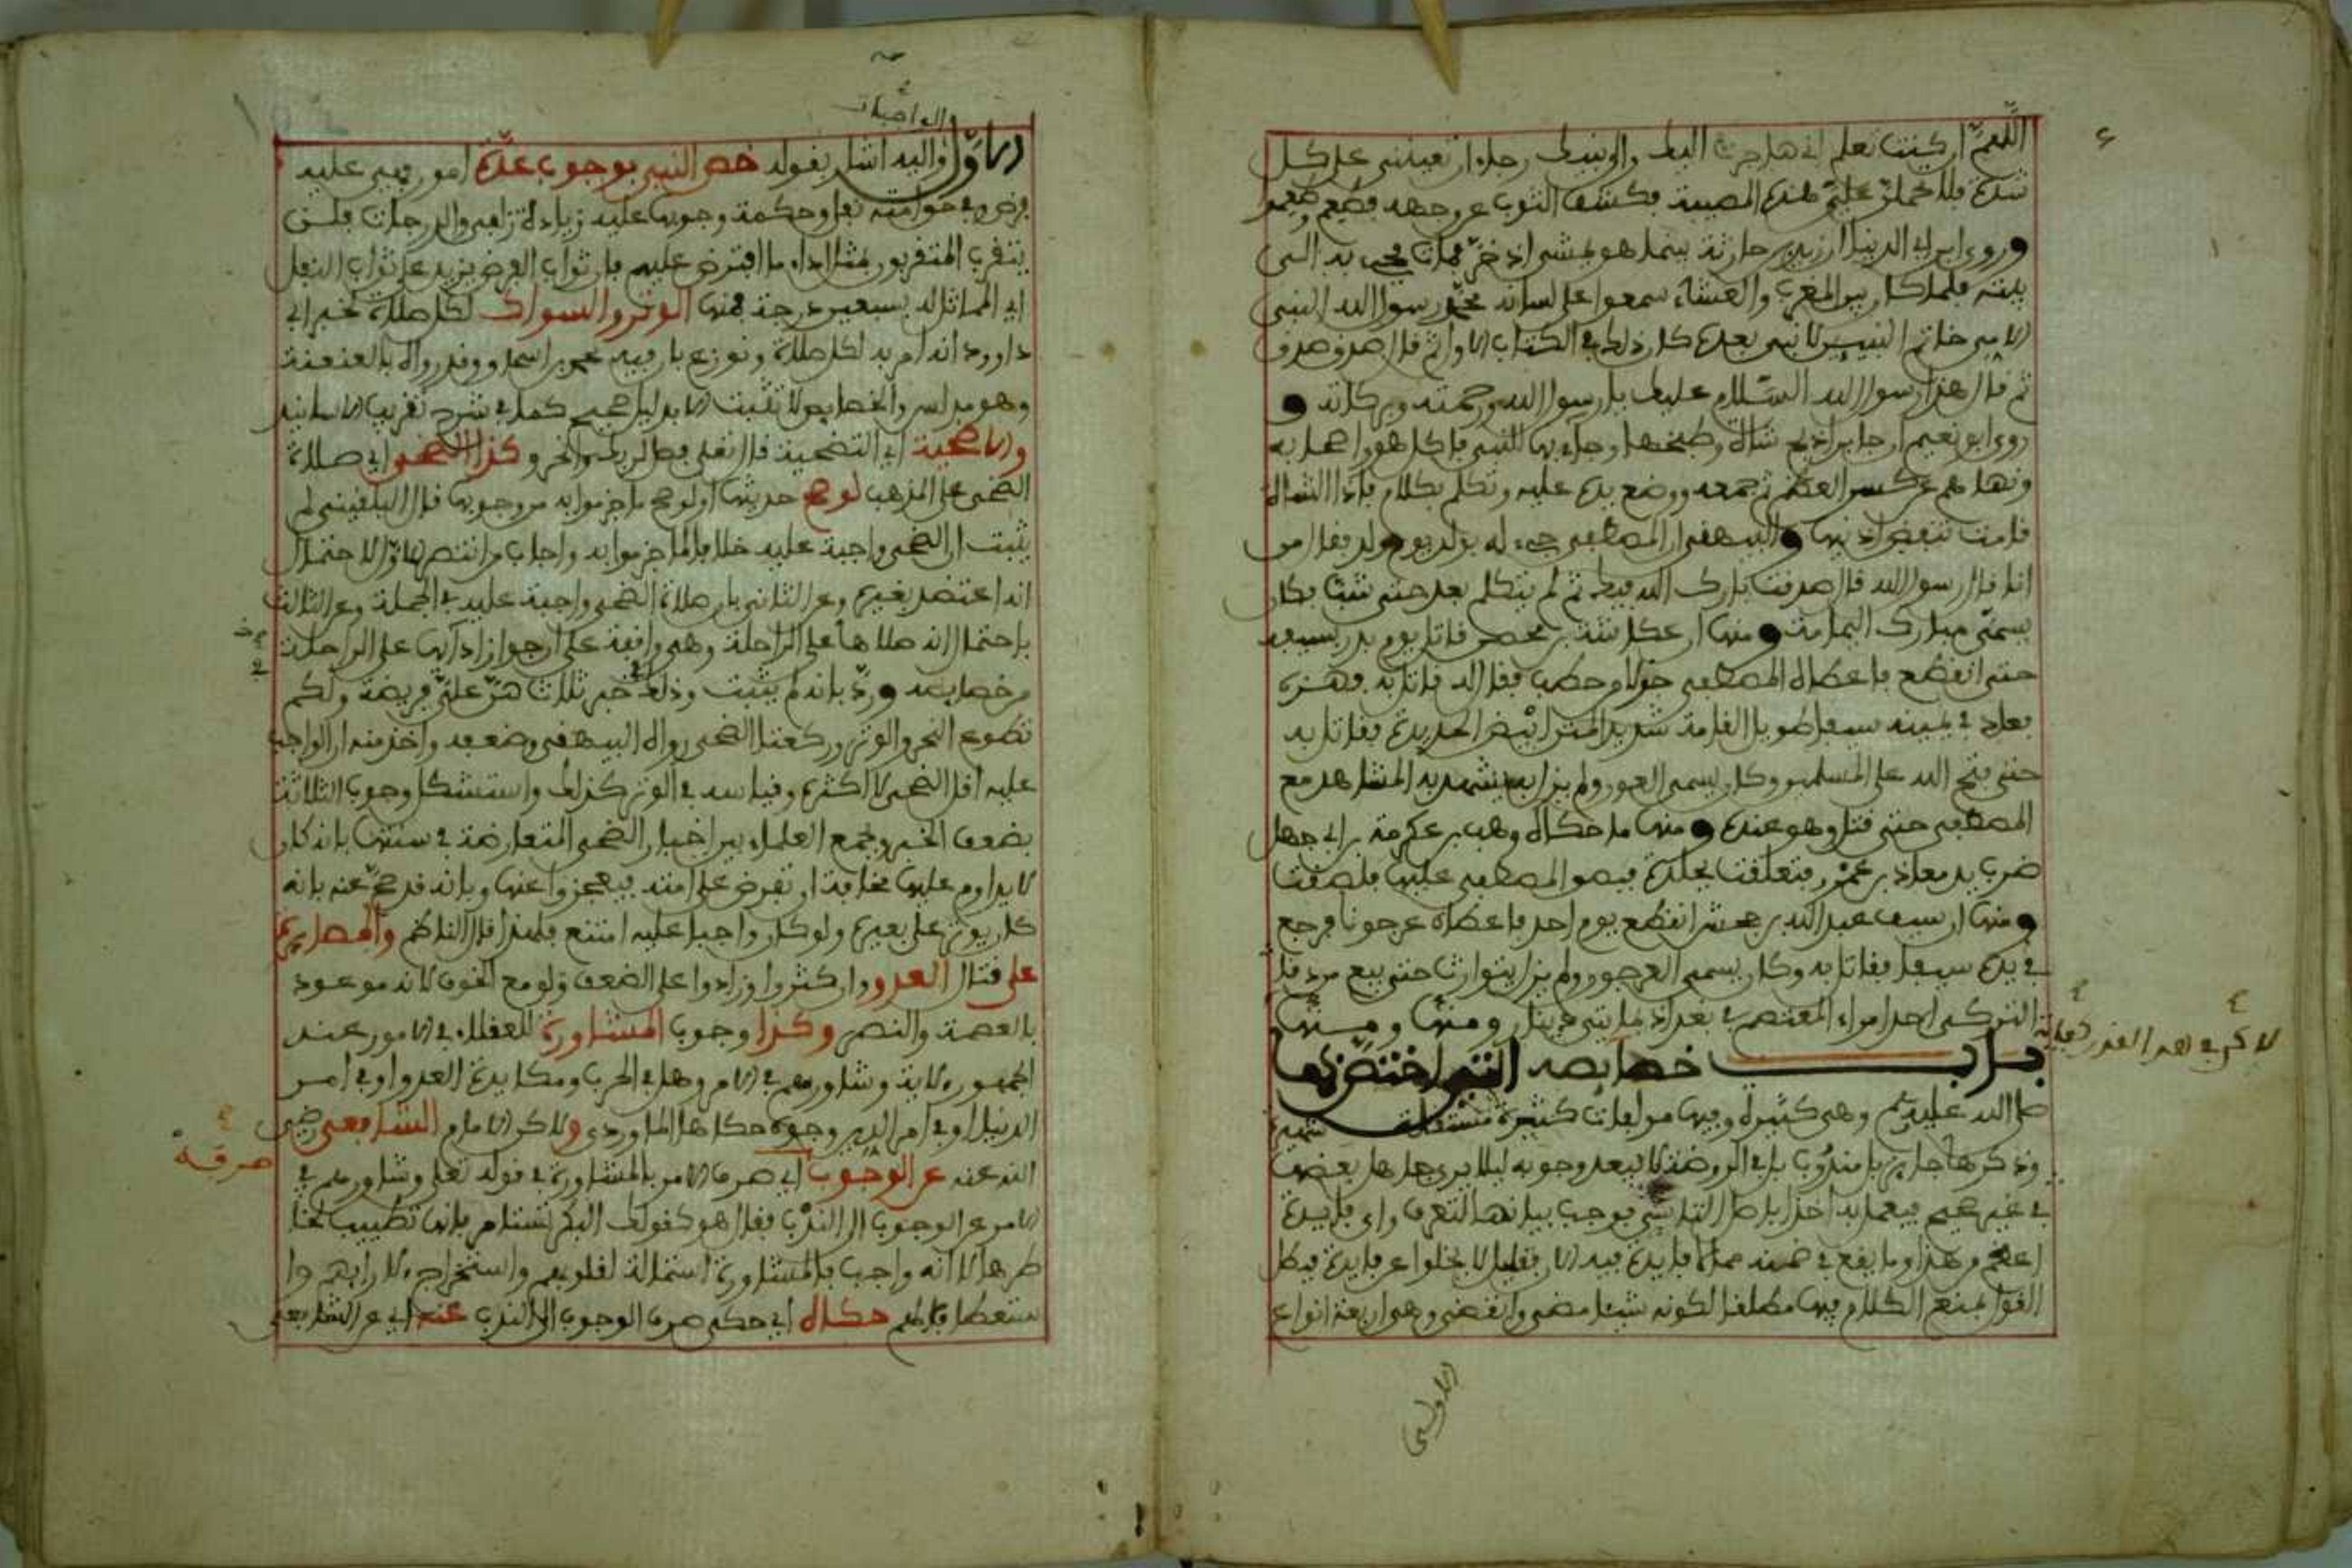 اللهم ان كنت تعلم اني هاجرت اليك والى نبيك رجاء ان تعينني على كل
شدة فلا تحملن علي هذه المصيبة فكشف الثوب عن وجهه فطعم وطعمنا
وروى ابن ابي الدنيا ان زيد بن حارثة بينما هو يمشي اذ خر فمات فجيء به الى
بيته فلما كان بين المغرب والعشاء سمعوا على لسانه محمد رسول الله النبي
الامي خاتم النبيين لا نبي بعده كان ذلك في الكتاب الاول ثم قال صدق صدق
ثم قال هذا رسول الله السلام عليك يا رسول الله ورحمته وبركاته و
روى ابو نعيم ان جابرا ذبح شاة وطبخها وجاء بها للنبي فاكل هو واصحابه
ونهاهم عن كسر العظم ثم جمعه ووضع يده عليه وتكلم بكلام فاذا الشاة
قامت تنفض اذنيها والبيهقي ان المصطفى جيء له بولد يوم ولد فقال من
انا قال رسول الله قال صدقت بارك الله فيك ثم لم يتكلم بعد حتى شب فكان
يسمى مبارك اليمامة ومنها ان عكاشة بن محصن قاتل يوم بدر بسيفه
حتى انقطع فاعطاه المصطفى جذلا من حطب فقال له قاتل به فهزه
فعاد في يمينه سيفا طويل القامة شديد المتن ابيض الحديدة فقاتل به
حتى فتح الله على المسلمين وكان يسمى العون ولم يزل يشهد به المشاهد مع
المصطفى حتى قتل وهو عنده ومنها ما حكاه وهب بن عكرمة بن ابي جهل
ضرب يد معاذ بن عمرو فتعلقت بجلده فبصق المصطفى عليها فلصقت
ومنها ان سيف عبد الله بن جحش انقطع يوم احد فاعطاه عرجونا فرجع
في يده سيفا فقاتل به وكان يسمى العرجون ولم يزل يتوارث حتى بيع من بغا
التركي احد امراء المعتصم في بغداد بمايتي دينار ومنها ومنها
لاكن في هذا القدر كفاية
باب خصايصه التي اختص بها
صلى الله عليه وسلم وهي كثيرة وفيها مولفات كثيرة مستقلة
وذكرها جايز بل مندوب بل في الروضة لا يبعد وجوبه ليلا يرى جاهل بعضها
في خبر صحيح فيعمل به اخذا باصل التاسي فوجب بيانها لتعرف واي فايدة
اعظم من هذا وما يقع في ضمنه مما لا فايدة فيه الان فقليل لا يخلوا عن فايدة فبطل
القول بمنع الكلام فيها مطلقا لكونه شيئا مضى وانقضى وهي اربعة انواع
الاول
الواجبات
الاول واليه اشار بقوله خص النبي بوجوب عدة امور فهي عليه
فرض وفي حق امته نفل وحكمة وجوبها عليه زيادة الزلفى والدرجات فلن
يتقرب المتقربون بمثل اداء ما افترض عليهم فان ثواب الفرض يزيد على ثواب النفل
اي المماثل له بسبعين درجة فمنها الوتر والسواك لكل صلاة لخبر ابي
داوود انه امر به لكل صلاة ونوزع بان فيه محمد بن اسحاق وقد رواه بالعنعنة
وهو مدلس والخصايص لا تثبت الا بدليل صحيح كما في شرح تقريب الاسانيد
والاضحية اي التضحية قال تعلى فصل لربك وانحر وكذا الضحى اي صلاة
الضحى على المذهب لو صح حديثها او لو صح ما جزموا به من وجوبها قال البلقيني لم
يثبت ان الضحى واجبة عليه خلافا لما جزموا به واجاب من انتصر للاول لاحتمال
انه اعتضد بغيره وعن الثاني بان صلاة الضحى واجبة عليه في الجملة وعن الثالث
باحتمال انه صلاها على الراحلة وهي واقفة على ان جواز ادايها على الراحلة
من خصايصه ورد بانه لم يثبت وذلك خبر ثلاث هن علي فريضة ولكم
تطوع النحر والوتر وركعتا الضحى رواه البيهقي وضعفه واخذ منه ان الواجب
عليه اقل الضحى لا اكثره وقياسه في الوتر كذلك واستشكل وجوب الثلاثة
بضعف الخبر وبجمع العلماء بين اخبار الضحى المتعارضة في سنتها بانه كان
لا يداوم عليها مخافة ان تفرض على امته فيعجزوا عنها وبانه قد صح عنه بانه
كان يوتر على بعيره ولو كان واجبا عليه امتنع فلهذا قال الناظم والمصابرة
على قتال العدو وان كثروا وزادوا على الضعف ولو مع الخوف لانه موعود
بالعصمة والنصر وكذا وجوب المشاورة للعقلاء في الامور عند
الجمهور لاية وشاورهم في الامر وهل في الحرب ومكايدة العدو او في امر
الدنيا او في امر الدين وجوه حكاها الماوردي ولاكن الامام الشافعي رضي
الله عنه عن الوجوب اي صرف الامر بالمشاورة في قوله تعلى وشاورهم في
صرفه
الامر عن الوجوب الى الندب فقال هو كقولك البكر تستامر فانها تطييب لخا
طرها لا انه واجب فالمشاورة استمالة لقلوبهم واستخراج لارايهم وا
ستعطافا لهم حكاه اي حكى صرف الوجوب الى الندب عنه اي عن الشافعي